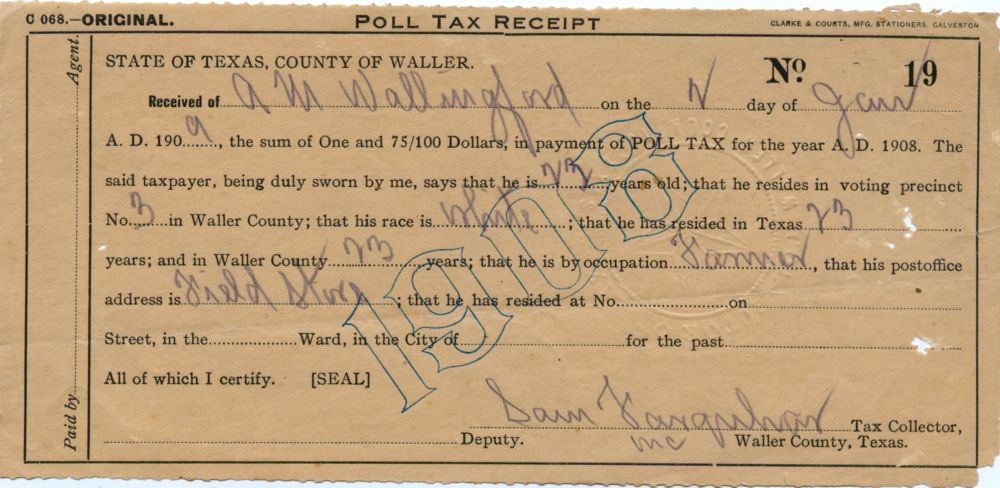 C 068.—ORIGINAL. POLL TAX RECEIPT CLARKE & COURTS, MFG. STATIONERS, GALVESTON
STATE OF TEXAS, COUNTY OF WALLER. No. 19
Received of A M Wallingford on the 2 day of Jany
A. D. 1909, the sum of One and 75/100 Dollars, in payment of POLL TAX for the year A. D. 1908. The
said taxpayer, being duly sworn by me, says that he is 23 years old; that he resides in voting precinct
No. 3 in Waller County; that his race is White; that he has resided in Texas 23
years; and in Waller County 23 years; that he is by occupation Farmer, that his postoffice
address is Field Store; that he has resided at No. on
Street, in the Ward, in the City of for the past
All of which I certify. [SEAL]
Sam Farquhar Tax Collector,
Deputy. mc Waller County, Texas.
1908
Agent.
Paid by